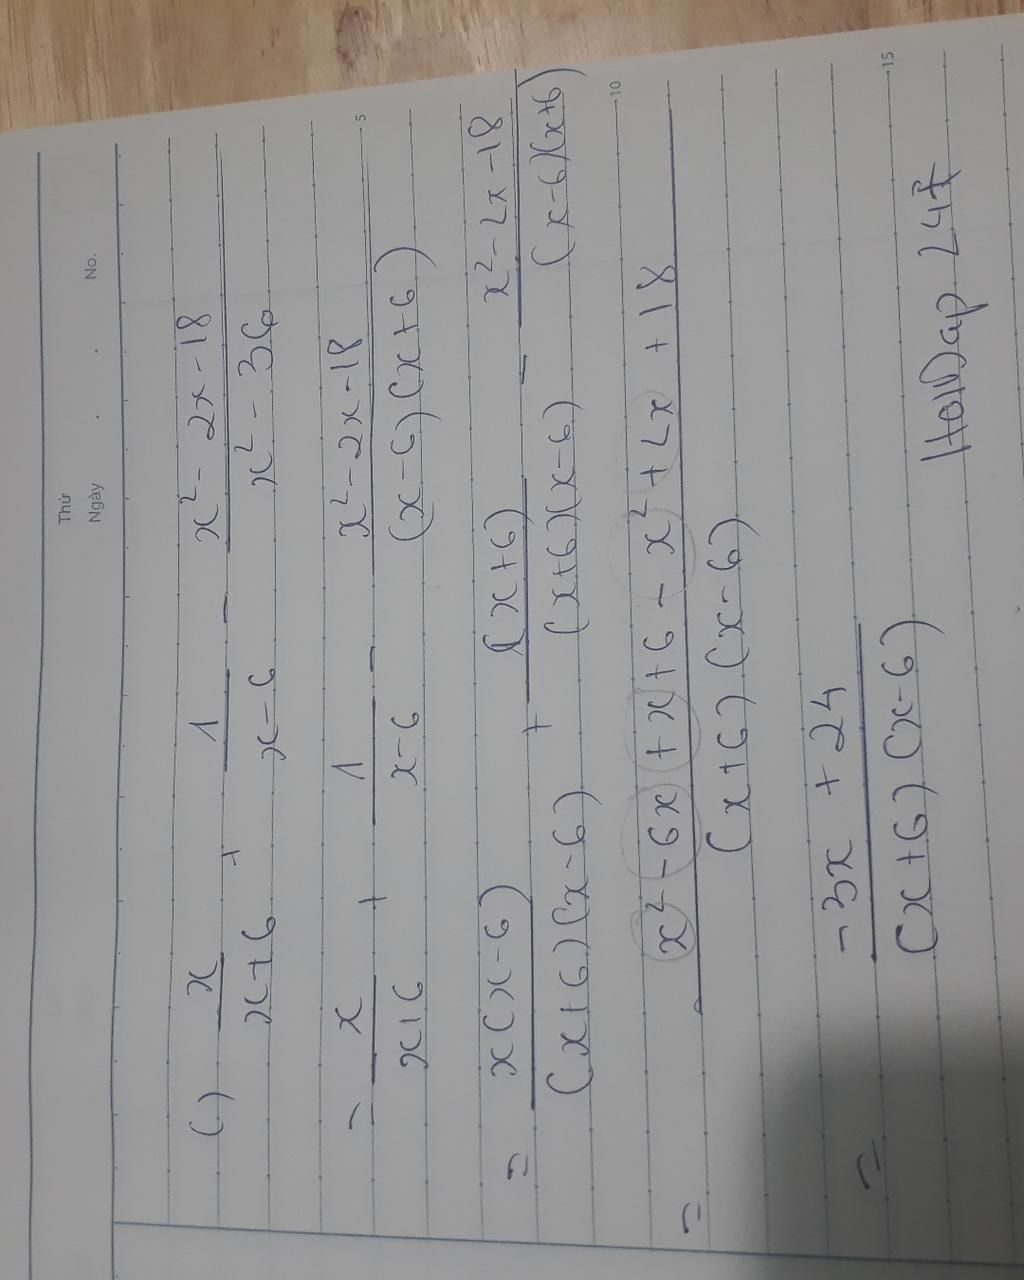 Thứ
Ngày . . No.
c) x/(x+6) + 1/(x-6) - (x² - 2x - 18)/(x² - 36)
5
= x/(x+6) + 1/(x-6) - (x² - 2x - 18)/((x-6)(x+6))
= x(x-6)/((x+6)(x-6)) + 1(x+6)/((x+6)(x-6)) - (x² - 2x - 18)/((x-6)(x+6))
10
= (x² - 6x + x + 6 - x² + 2x + 18)/((x+6)(x-6))
= (-3x + 24)/((x+6)(x-6))
15
HoiDap 247